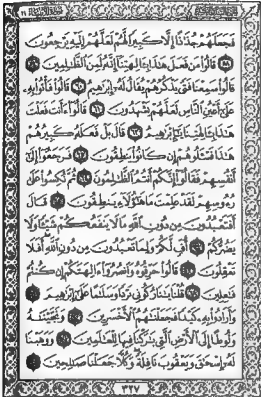 فَجَعَلَهُمْ جُذَٰذًا إِلَّا كَبِيرًا لَّهُمْ لَعَلَّهُمْ إِلَيْهِ يَرْجِعُونَ
٥٨ قَالُوا۟ مَن فَعَلَ هَٰذَا بِـَٔالِهَتِنَآ إِنَّهُۥ لَمِنَ ٱلظَّٰلِمِينَ ٥٩
قَالُوا۟ سَمِعْنَا فَتًى يَذْكُرُهُمْ يُقَالُ لَهُۥٓ إِبْرَٰهِيمُ ٦٠ قَالُوا۟ فَأْتُوا۟ بِهِۦ
عَلَىٰٓ أَعْيُنِ ٱلنَّاسِ لَعَلَّهُمْ يَشْهَدُونَ ٦١ قَالُوٓا۟ ءَأَنتَ فَعَلْتَ
هَٰذَا بِـَٔالِهَتِنَا يَٰٓإِبْرَٰهِيمُ ٦٢ قَالَ بَلْ فَعَلَهُۥ كَبِيرُهُمْ
هَٰذَا فَسْـَٔلُوهُمْ إِن كَانُوا۟ يَنطِقُونَ ٦٣ فَرَجَعُوٓا۟ إِلَىٰٓ
أَنفُسِهِمْ فَقَالُوٓا۟ إِنَّكُمْ أَنتُمُ ٱلظَّٰلِمُونَ ٦٤ ثُمَّ نُكِسُوا۟ عَلَىٰ
رُءُوسِهِمْ لَقَدْ عَلِمْتَ مَا هَٰٓؤُلَآءِ يَنطِقُونَ ٦٥ قَالَ
أَفَتَعْبُدُونَ مِن دُونِ ٱللَّهِ مَا لَا يَنفَعُكُمْ شَيْـًٔا وَلَا
يَضُرُّكُمْ ٦٦ أُفٍّ لَّكُمْ وَلِمَا تَعْبُدُونَ مِن دُونِ ٱللَّهِ أَفَلَا
تَعْقِلُونَ ٦٧ قَالُوا۟ حَرِّقُوهُ وَٱنصُرُوٓا۟ ءَالِهَتَكُمْ إِن كُنتُمْ
فَٰعِلِينَ ٦٨ قُلْنَا يَٰنَارُ كُونِى بَرْدًا وَسَلَٰمًا عَلَىٰٓ إِبْرَٰهِيمَ ٦٩
وَأَرَادُوا۟ بِهِۦ كَيْدًا فَجَعَلْنَٰهُمُ ٱلْأَخْسَرِينَ ٧٠ وَنَجَّيْنَٰهُ
وَلُوطًا إِلَى ٱلْأَرْضِ ٱلَّتِى بَٰرَكْنَا فِيهَا لِلْعَٰلَمِينَ ٧١ وَوَهَبْنَا
لَهُۥٓ إِسْحَٰقَ وَيَعْقُوبَ نَافِلَةً وَكُلًّا جَعَلْنَا صَٰلِحِينَ ٧٢
٣٢٧